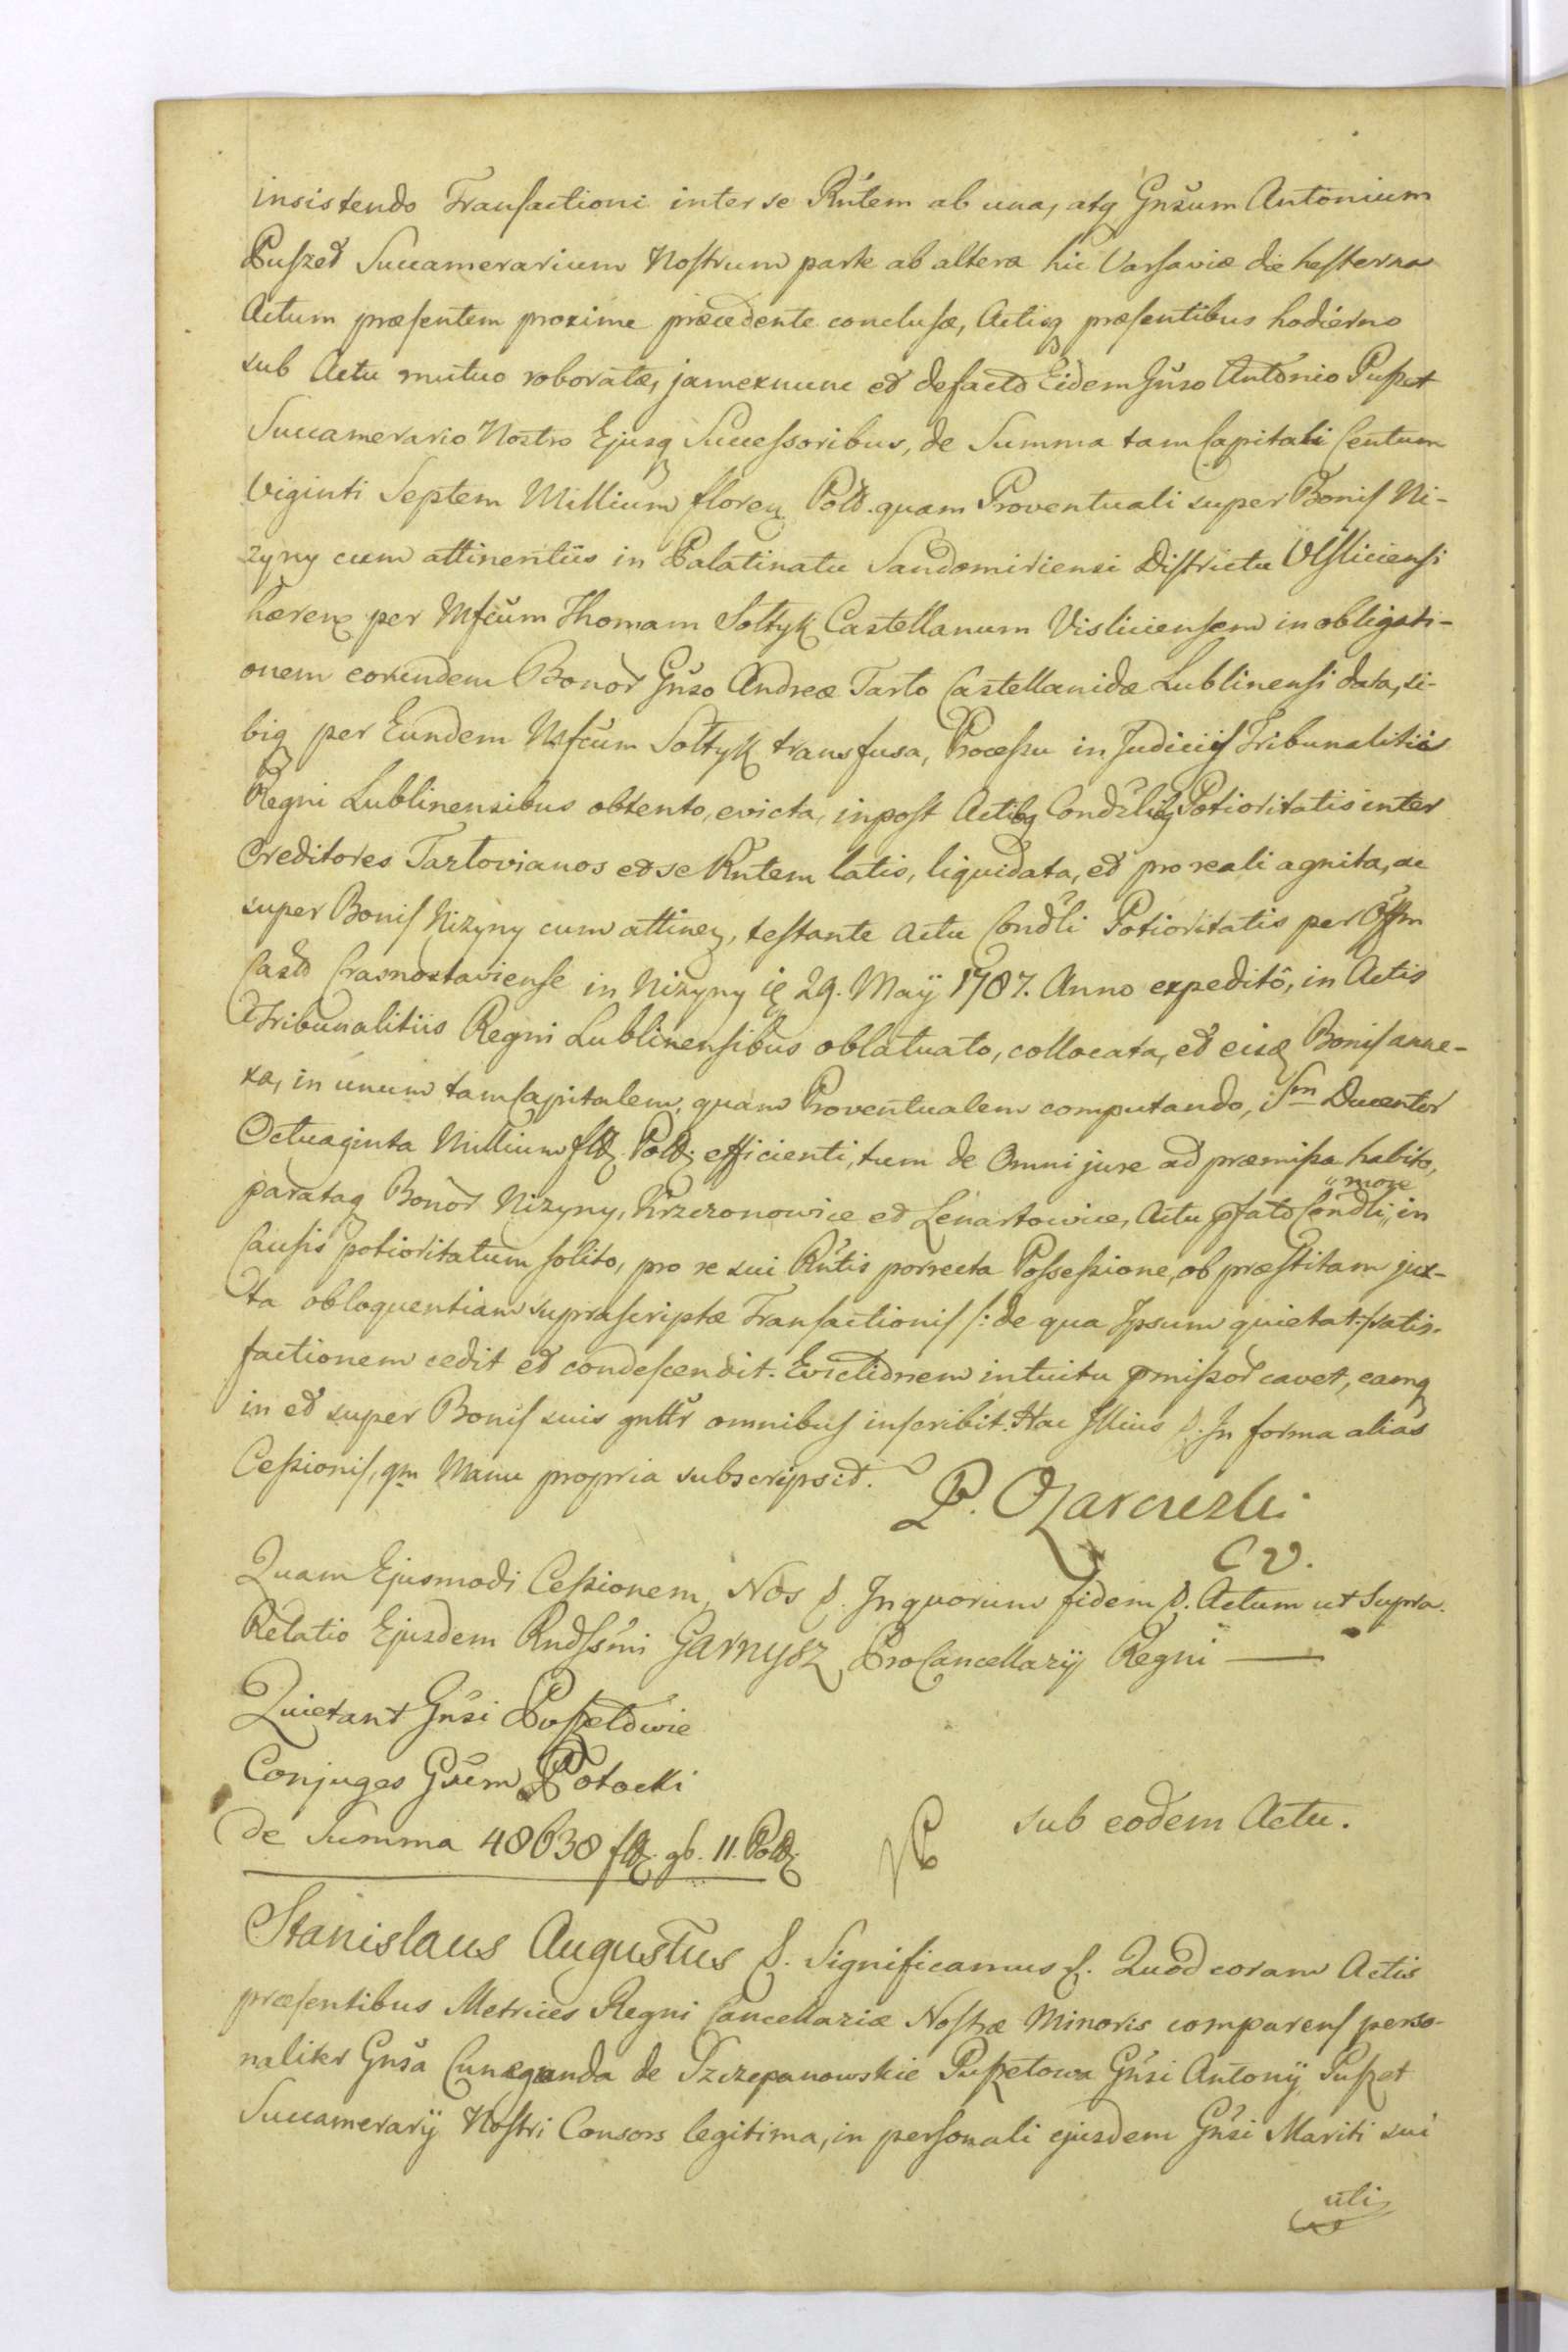 insistendo Transactioni inter se Rńtem ab una, atq Gnsum Antonium
Puszet Succamerarium Nostrum parte ab altera hic Varsaviæ die hesterna
Actum præsentem proxime præcedente conclusæ, Actisq præsentibus hodierno
sub Actu mutuo roboratæ, jamexnunc et defacto Eidem Gnso Antonio Puszet
Succamerario Nostro Ejusq Successoribus, de Summa tam Capitali Centum
Viginti Septem Millium floren Pold. quam Proventuali super Bonis Ni-
zyny cum attinentiis in Palatinatu Sandomiriensi Districtu Visliciensi
hæren per Mfcum Thomam Soltyk Castellanum Visliciensem in obligati-
onem eorundem Bonor Gnso Andreæ Tarło Castellanidæ Lublinensi data, si-
biq per Eundem Mfcum Sołtyk transfusa, Processu in Judiciis Tribunalitiis
Regni Lublinensibus obtento, evicta, inpost Actibq Condlibq Potioritatis inter
Creditores Tarlovianos et se Rntem latis, liquidata, et pro reali agnita, ac
super Bonis Nizyny cum attinen, testante Actu Condli Potioritatis per Offm
Castr Crasnostaviense in Nizyny 29. Maÿ 1787. Anno expedito, in Actis
Tribunalitiis Regni Lublinensibus oblatuato, collocata, et eisd Bonis anne-
xa, in unum tam Capitalem, quam Proventualem computando, Sm Ducentor
Octuaginta Millium fld. Pold. efficienti, tum de Omni jure ad præmissa habito,
parataq Bonor Nizyny, Krzczonowice et Lenartowice, Actu pfato Condli, more in
Causis potioritatum solito, pro re sui Rntis porrecta Possessione, ob præstitam jux-
ta obloquentiam suprascriptæ Transactionis /: de qua Ipsum quietat :/ satis-
factionem cedit et condescendit. Evictionem intuitu pmissor cavet, eamq
in et super Bonis suis gnttr omnibus inscribit. Hac Illius &. In forma alias
Cessionis, qm Manu propria subscripsit. P. Ożarowski
CV.
Quam Ejusmodi Cessionem, Nos &. Inquorum fidem &. Actum ut Supra.
Relatio Ejusdem Rndssmi Garnysz ProCancellarÿ Regni —
Quietant Gnsi Puszetowie
Conjuges Gsum Potocki
de Summa 48638 fld. gb. 11. Pold. sub eodem Actu.
Stanislaus Augustus &. Significamus &. Quod coram Actis
præsentibus Metrices Regni Cancellariæ Nostræ Minoris comparens perso-
naliter Gnsa Cunegunda de Szczepanowskie Puszetowa Gnsi Antonÿ Puszet
Succamerarÿ Nostri Consors legitima, in personali ejusdem Gnsi Mariti sui
uti